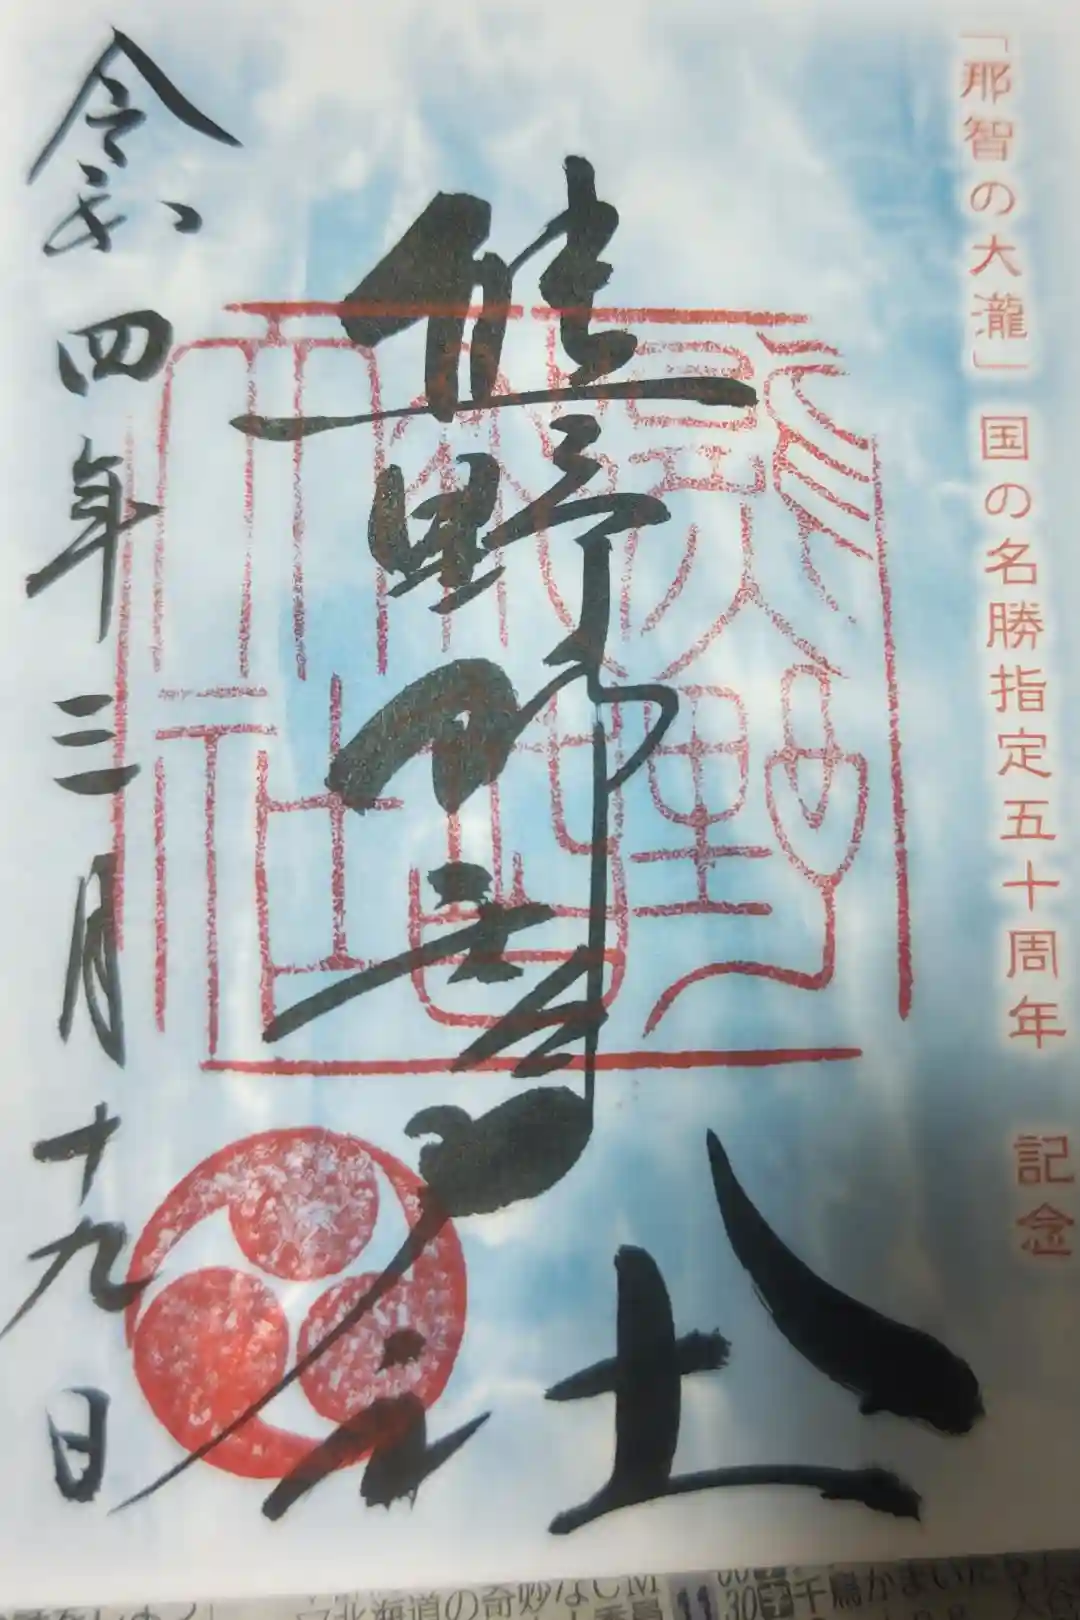 「那智の大瀧」国の名勝指定五十周年 記念
熊野那智大社
令和四年三月十九日
北海道の奇妙な
11 30 千鳥かまいたち